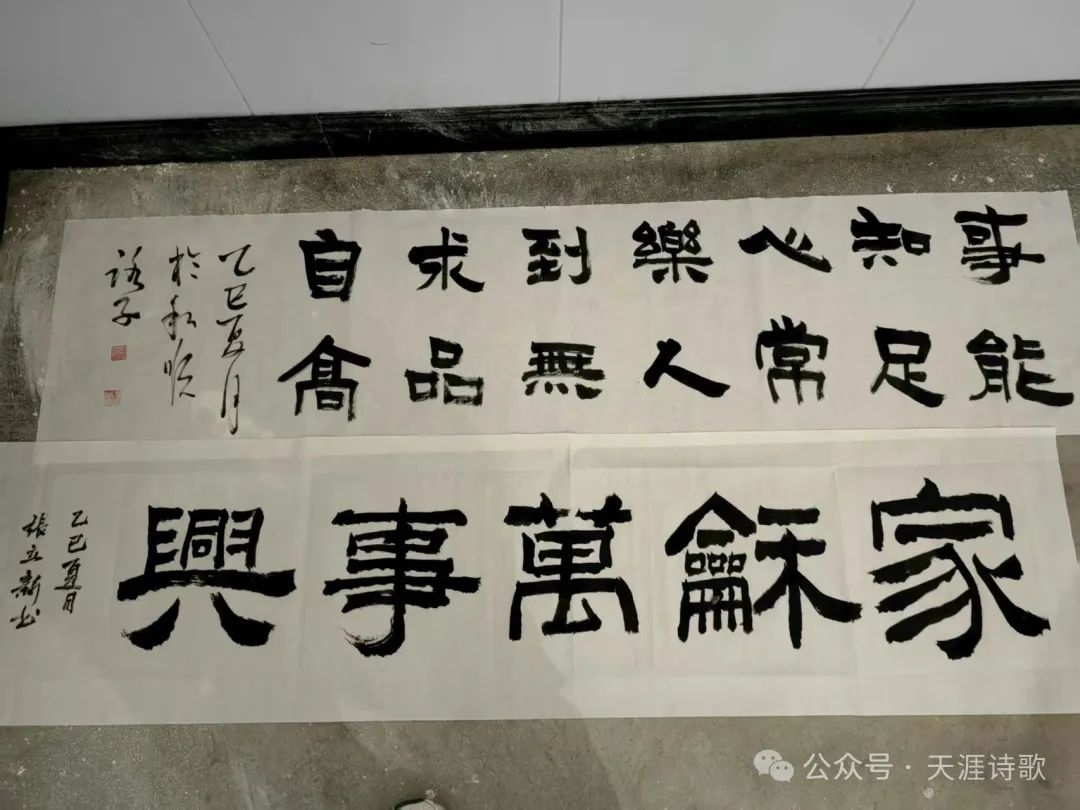 事能
知足
心常
樂人
到無
求品
自高
乙巳夏月
於和順
家龢萬事興
乙巳夏月
張立新书
公众号 · 天涯诗歌